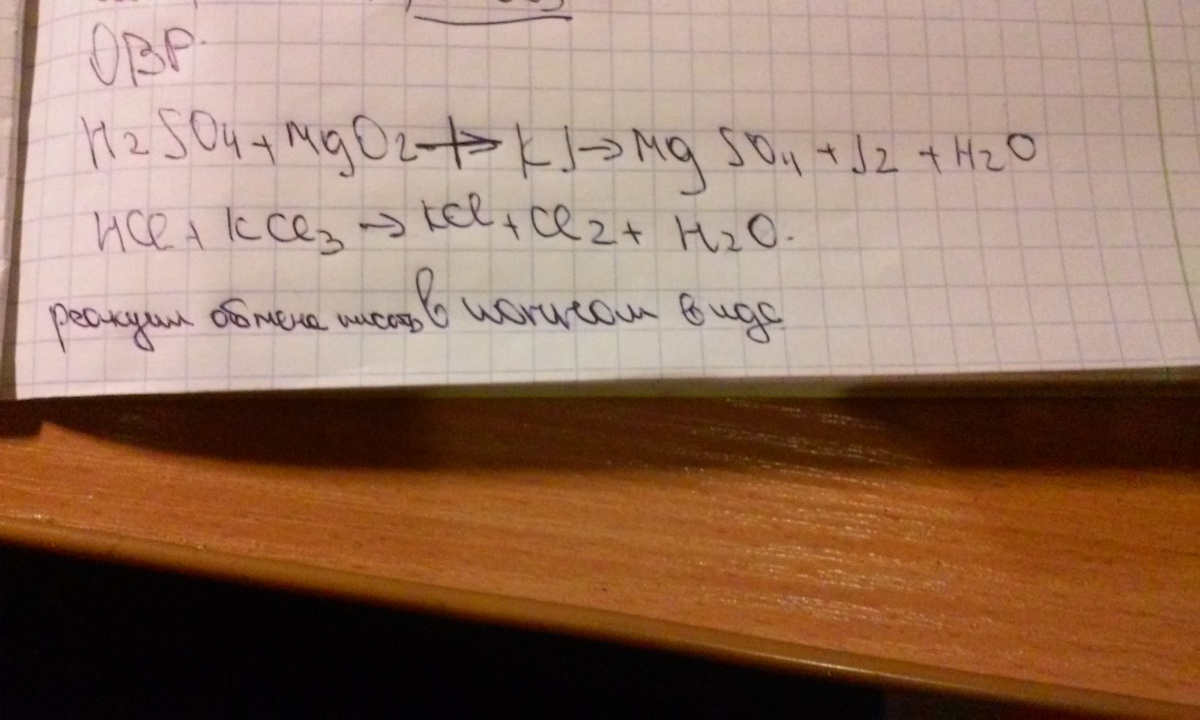 ОВР.
H2SO4 + MgO2 → KJ → MgSO4 + J2 + H2O
HCl + KCl3 → KCl + Cl2 + H2O.
реакции обмена писать в ионном виде